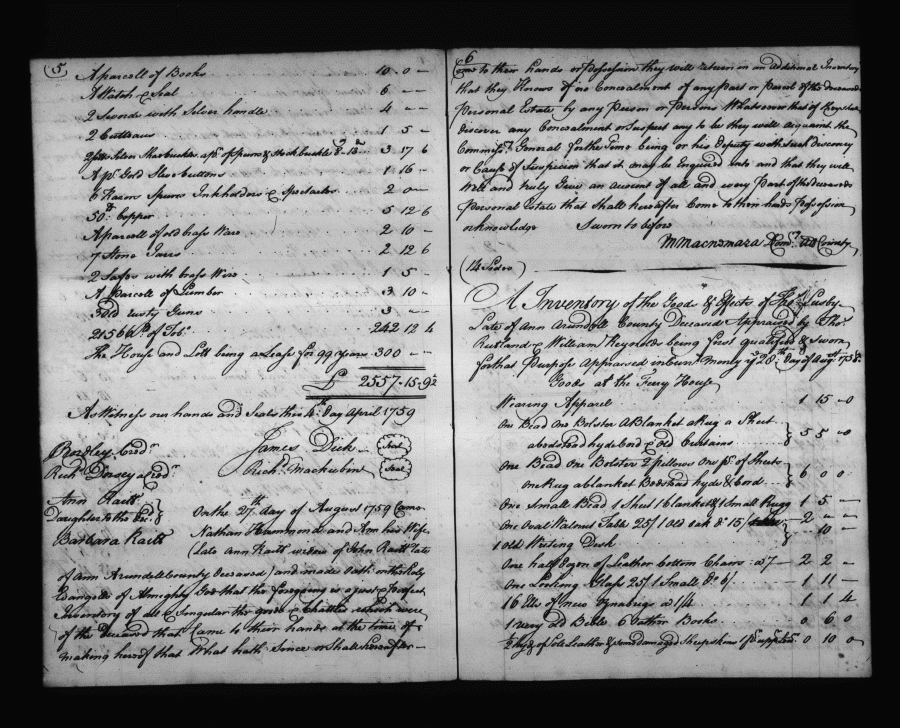 5
A parcell of Books 10 - 0 -
A Watch & Seal 6 - -
2 Swords with Silver handle 4 - -
2 Cutteaus 1 5 -
2 pr Silver Shoebuckles a pr of Spurrs & Stockbuckle 3 17 6
A pr. Gold Sleevebuttons 1 16 -
6 Razors Spurrs Inkholders & Spectacles 2 0 -
50 lb Copper 5 12 6
A parcell of old brass Ware 2 10 -
7 Stone Jarrs 2 12 6
2 Safes with brass Wire 1 5 -
A Parcell of Lumber 3 10 -
3 Old rusty Guns 3 - -
21566 lb. of Tobo 242 12 4
The House and Lott being a Lease for 99 Years 300 - -
£ 2557 - 15 - 9½
As Witness our hands and Seals this 4th. day April 1759
Bordley Credr. James Dick Seal
Richd. Dorsey Credr. Richd. Mackubin Seal
Ann Raitt
Daughter to the Dec
Barbara Raitt
On the 27th. day of August 1759 Came
Nathan Hammond and Ann his Wife
(late Ann Raitt widow of John Raitt late
of Ann Arundell County Deceased) and made Oath on the Holy
Evangells of Almighty God that the foregoing is a just & Perfect
Inventory of all & Singular the goods & Chattles which were
of the Deceased that Came to their hands at the time of
making hereof that What hath Since or Shall hereafter
6
come to their hands or possession they will return in an additional Inventory
that they Knows of no Concealment of any part or parcel of the deceaseds
Personal Estate by any Person or Persons Whatsoever that if they shall
discover any Concealment or Suspect any to be they will acquaint the
Commissy. General for the Time being or his Deputy with Such Discovery
or Cause of Suspicion that it may be Enquired into and that they will
Well and truly Give an account of all and every Part of the deceaseds
Personal Estate that Shall hereafter Come to their hands Possession
or knowledge Sworn to before
M Macnemara County
(14 Sides)
A Inventory of the Goods & Effects of Thos. Lusby
Late of Ann Arundell County Deceased Appraised by Thos.
Rutland & William Reynolds being first qualified & Sworn
for that Purpose Appraised in Curr. Money ye 28th. day of Augt. 1758
Goods at the Ferry House
Wearing Apparel 1 15 - 0
One Bead One Bolster A Blanket a Rug a Sheet
abedstead hyde Cord & Old Curtains 5 5 - 0
One Bead One Bolster 2 pillows One pr. of Sheets
one Rug a blanket Bedstead hyde & Cord 6 0 0
One Small Bead 1 Sheet 1 blanket & 1 Small Rugg 1 5 -
One Oval Walnut Table 25/ 1 old oak Do 15/ 2 - -
1 old Writing Desk - 10 -
One half dozen of Leather bottom Chairs a 7 2 2 -
One Looking Glass 25/ 1 Small Do 6/ 1 11 -
16 Ells of new Oznabrigs a 1/4 1 1 4
1 very old Bible 6 other Books 0 6 0
½ hyde of Sole Leather & some damaged Sheepskins 0 10 0